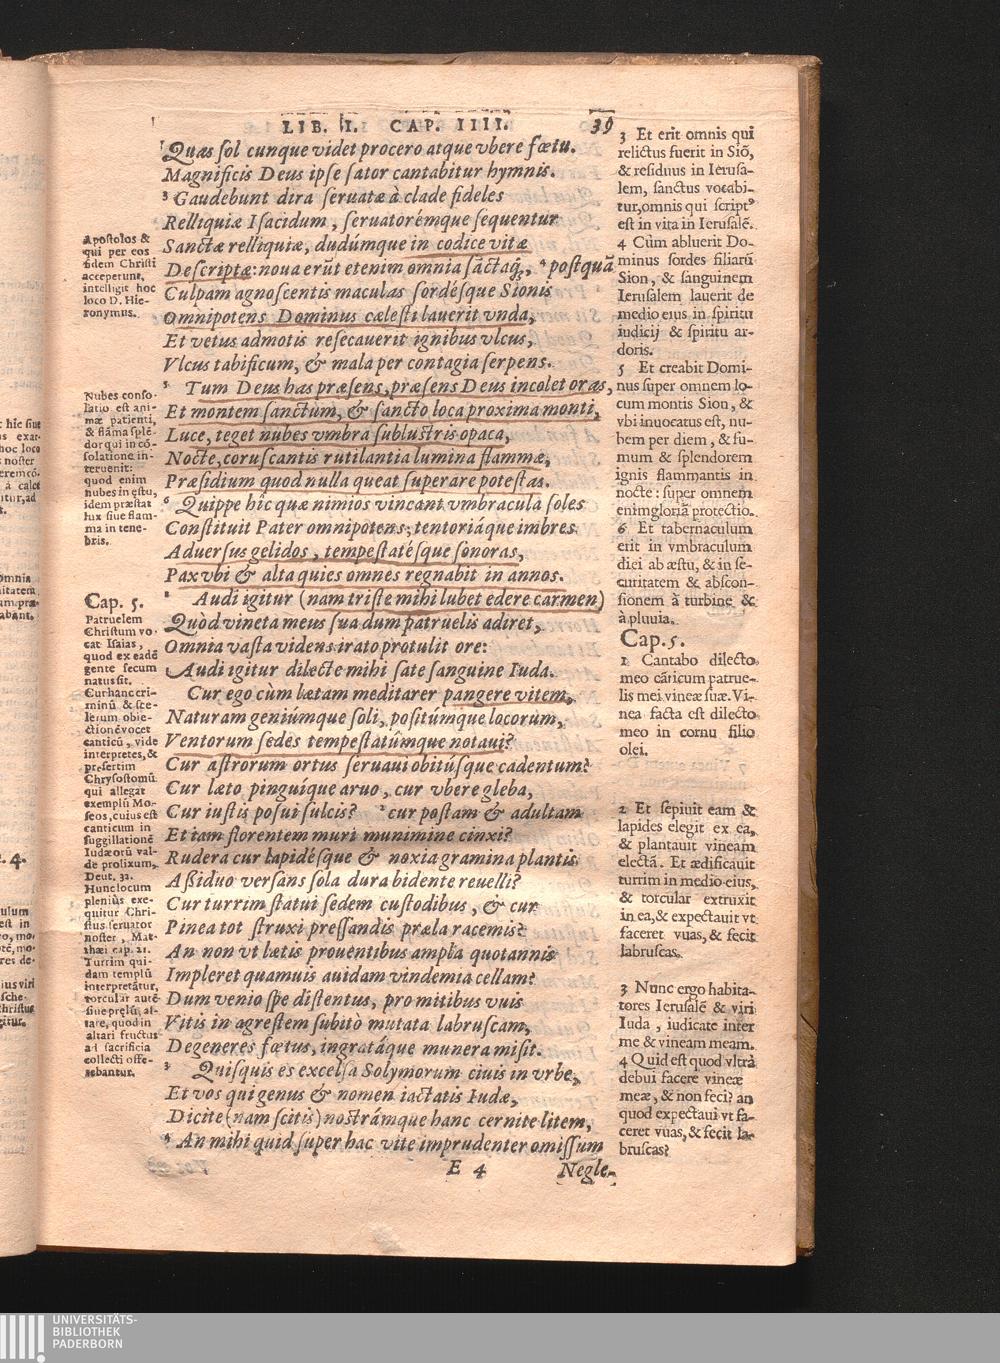 LIB. I. CAP. IIII. 39
Quas sol cunque videt procero atque vbere fœtu.
Magnificis Deus ipse sator cantabitur hymnis.
3 Gaudebunt dira seruatæ à clade fideles
Relliquiæ Isacidum, seruatorémque sequentur
Sanctæ relliquiæ, dudúmque in codice vitæ
Descriptæ: noua erūt etenim omnia sāctaq́;, 4 postquā
Culpam agnoscentis maculas sordésque Sionis
Omnipotens Dominus cælesti lauerit vnda,
Et vetus admotis resecauerit ignibus vlcus,
Vlcus tabificum, & mala per contagia serpens.
5 Tum Deus has præsens, præsens Deus incolet oras,
Et montem sanctum, & sancto loca proxima monti,
Luce, teget nubes vmbra sublustris opaca,
Nocte, coruscantis rutilantia lumina flammæ,
Præsidium quod nulla queat superare potestas.
6 Quippe hîc quæ nimios vincant vmbracula soles
Constituit Pater omnipotens, tentoriáque imbres
Aduersus gelidos, tempestatésque sonoras,
Pax vbi & alta quies omnes regnabit in annos.
1 Audi igitur (nam triste mihi lubet edere carmen)
Quòd vineta meus sua dum patruelis adiret,
Omnia vasta videns irato protulit ore:
Audi igitur dilecte mihi sate sanguine Iuda.
Cur ego cùm lætam meditarer pangere vitem,
Naturam geniúmque soli, positúmque locorum,
Ventorum sedes tempestatûmque notaui?
Cur astrorum ortus seruaui obitúsque cadentum?
Cur læto pinguíque aruo, cur vbere gleba,
Cur iustis posui sulcis? 2 cur postam & adultam
Et iam florentem muri munimine cinxi?
Rudera cur lapidésque & noxia gramina plantis
Aßiduo versans sola dura bidente reuelli?
Cur turrim statui sedem custodibus, & cur
Pinea tot struxi pressandis præla racemis?
An non vt lætis prouentibus ampla quotannis
Impleret quamuis auidam vindemia cellam?
Dum venio spe distentus, pro mitibus vuis
Vitis in agrestem subitò mutata labruscam,
Degeneres fœtus, ingratáque munera misit.
3 Quisquis es excelsa Solymorum ciuis in vrbe,
Et vos qui genus & nomen iactatis Iudæ,
Dicite (nam scitis) nostrámque hanc cernite litem,
4 An mihi quid super hac vite imprudenter omissum
E 4 Negle-
Apostolos &
qui per eos
fidem Christi
acceperunt,
intelligit hoc
loco D. Hie-
ronymus.
Nubes conso-
latio est ani-
mæ patienti,
& flāma splē-
dor qui in cō-
solatione in-
teruenit:
quod enim
nubes in ęstu,
idem præstat
lux siue flam-
ma in tene-
bris.
Cap. 5.
Patruelem
Christum vo-
cat Isaias,
quod ex eadē
gente secum
natus sit.
Cur hanc cri-
minū & sce-
lerum obie-
ctionē vocet
canticū, vide
interpretes, &
præsertim
Chrysostomū
qui allegat
exemplū Mo-
seos, cuius est
canticum in
suggillationē
Iudæorū val-
de prolixum,
Deut. 32.
Hunc locum
pleniùs exe-
quitur Chri-
stus seruator
noster, Mat-
thæi cap. 21.
Turrim qui-
dam templū
interpretātur,
torcular autē
siue pręlū, al-
tare, quod in
altari fructus
ad sacrificia
collecti offe-
rebantur.
3 Et erit omnis qui
relictus fuerit in Siō,
& residuus in Ierusa-
lem, sanctus vocabi-
tur, omnis qui script9
est in vita in Ierusalē.
4 Cùm abluerit Do-
minus sordes filiarū
Sion, & sanguinem
Ierusalem lauerit de
medio eius in spiritu
iudicij & spiritu ar-
doris.
5 Et creabit Domi-
nus super omnem lo-
cum montis Sion, &
vbi inuocatus est, nu-
bem per diem, & fu-
mum & splendorem
ignis flammantis in
nocte: super omnem
enim gloriā protectio.
6 Et tabernaculum
erit in vmbraculum
diei ab æstu, & in se-
curitatem & abscon-
sionem à turbine &
à pluuia.
Cap. 5.
1 Cantabo dilecto
meo cāticum patrue-
lis mei vineæ suæ. Vi-
nea facta est dilecto
meo in cornu filio
olei.
2 Et sepiuit eam &
lapides elegit ex ea,
& plantauit vineam
electā. Et ædificauit
turrim in medio eius,
& torcular extruxit
in ea, & expectauit vt
faceret vuas, & fecit
labruscas.
3 Nunc ergo habita-
tores Ierusalē & viri
Iuda, iudicate inter
me & vineam meam.
4 Quid est quod vltrà
debui facere vineæ
meæ, & non feci? an
quod expectaui vt fa-
ceret vuas, & fecit la-
bruscas?
UNIVERSITÄTS-
BIBLIOTHEK
PADERBORN